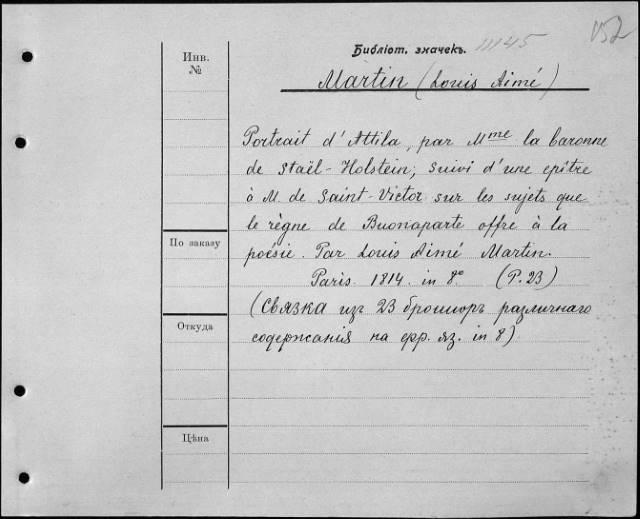 Библіот. значекъ. 11145
152
Инв.
№
Martin (Louis Aimé)
Portrait d'Attila, par Mme la baronne
de Staël-Holstein; suivi d'une epître
à M. de Saint-Victor sur les sujets que
le règne de Buonaparte offre à la
По заказу
poésie. Par Louis Aimé Martin.
Paris. 1814. in 8º (P. 23)
(Связка изъ 23 брошюръ различнаго
Откуда
содержанія на фр. яз. in 8)
Цѣна